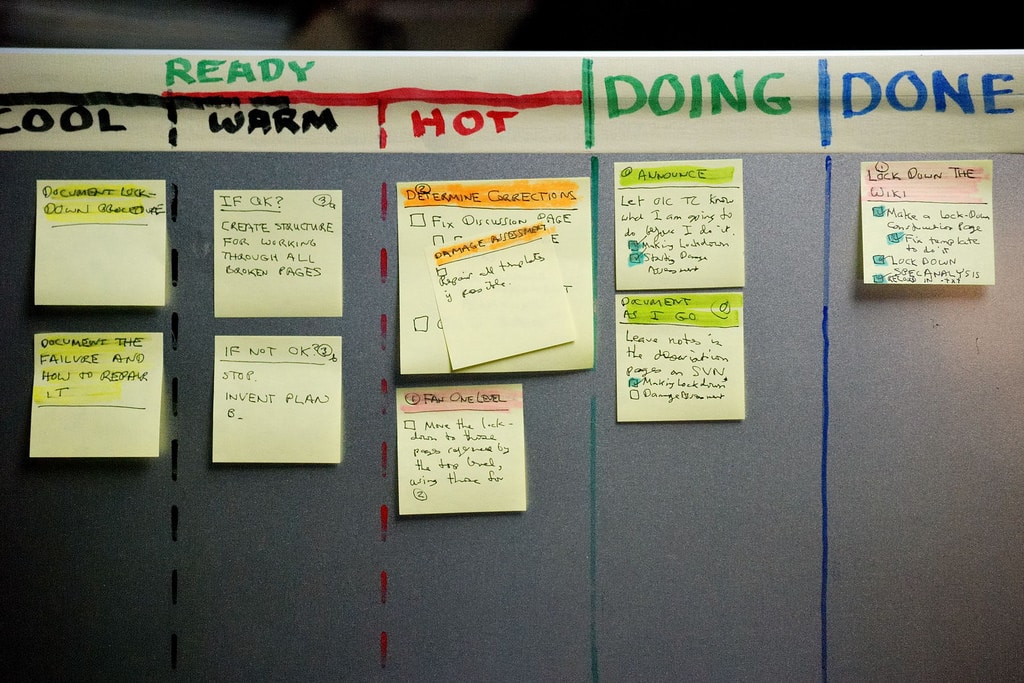 READY
COOL
WARM
HOT
DOING
DONE
DOCUMENT LOCK-
DOWN PROCEDURE
DOCUMENT THE
FAILURE AND
HOW TO REPAIR
IT
IF OK?
CREATE STRUCTURE
FOR WORKING
THROUGH ALL
BROKEN PAGES
IF NOT OK?
STOP.
INVENT PLAN
B_
② DETERMINE CORRECTIONS
FIX DISCUSSION PAGE
DAMAGE ASSESSMENT
Repair all templates
if possible.
① FAN ONE LEVEL
Move the lock-
down to those
pages referenced by
the top level,
using those for
②
ANNOUNCE
Let OIC TZ know
what I am going to
do before I do it.
Making Lockdown
Starting Damage
Assessment
DOCUMENT
AS I GO
Leave notes in
the description
pages on SVN
Making Lockdown
Damage Assessment
①
LOCK DOWN THE
WIKI
Make a Lock-Down
Construction Page
Fix template
to do it
LOCK DOWN
SPECANALYSIS